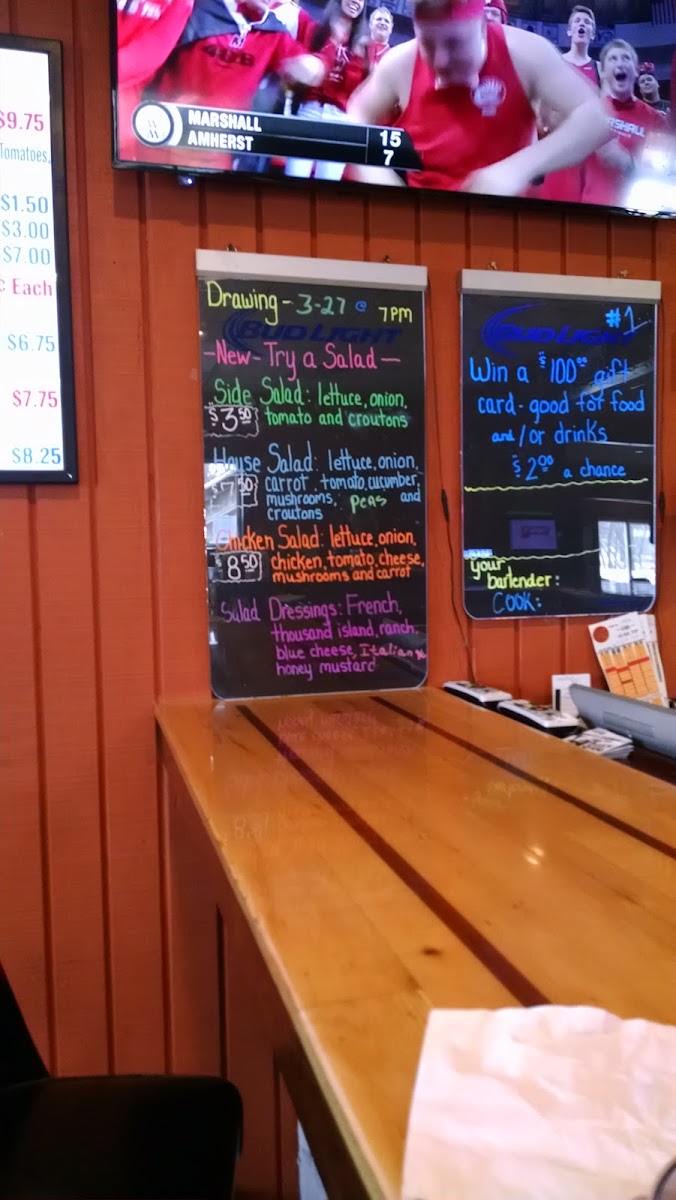 MARSHALL 15
AMHERST 7
$9.75
Tomatoes,
$1.50
$3.00
$7.00
¢ Each
$6.75
$7.75
$8.25
Drawing - 3-27 @ 7PM
BUD LIGHT
-New- Try a Salad -
Side Salad: lettuce, onion,
$3.50 tomato and croutons
House Salad: lettuce, onion,
$7.50 carrot, tomato, cucumber,
mushrooms, peas and
croutons
Chicken Salad: lettuce, onion,
$8.50 chicken, tomato, cheese,
mushrooms and carrot
Salad Dressings: French,
thousand island, ranch,
blue cheese, Italian &
honey mustard
#1
BUD LIGHT
Win a $100.00 gift
card - good for food
and/or drinks
$2.00 a chance
your
bartender:
COOK: